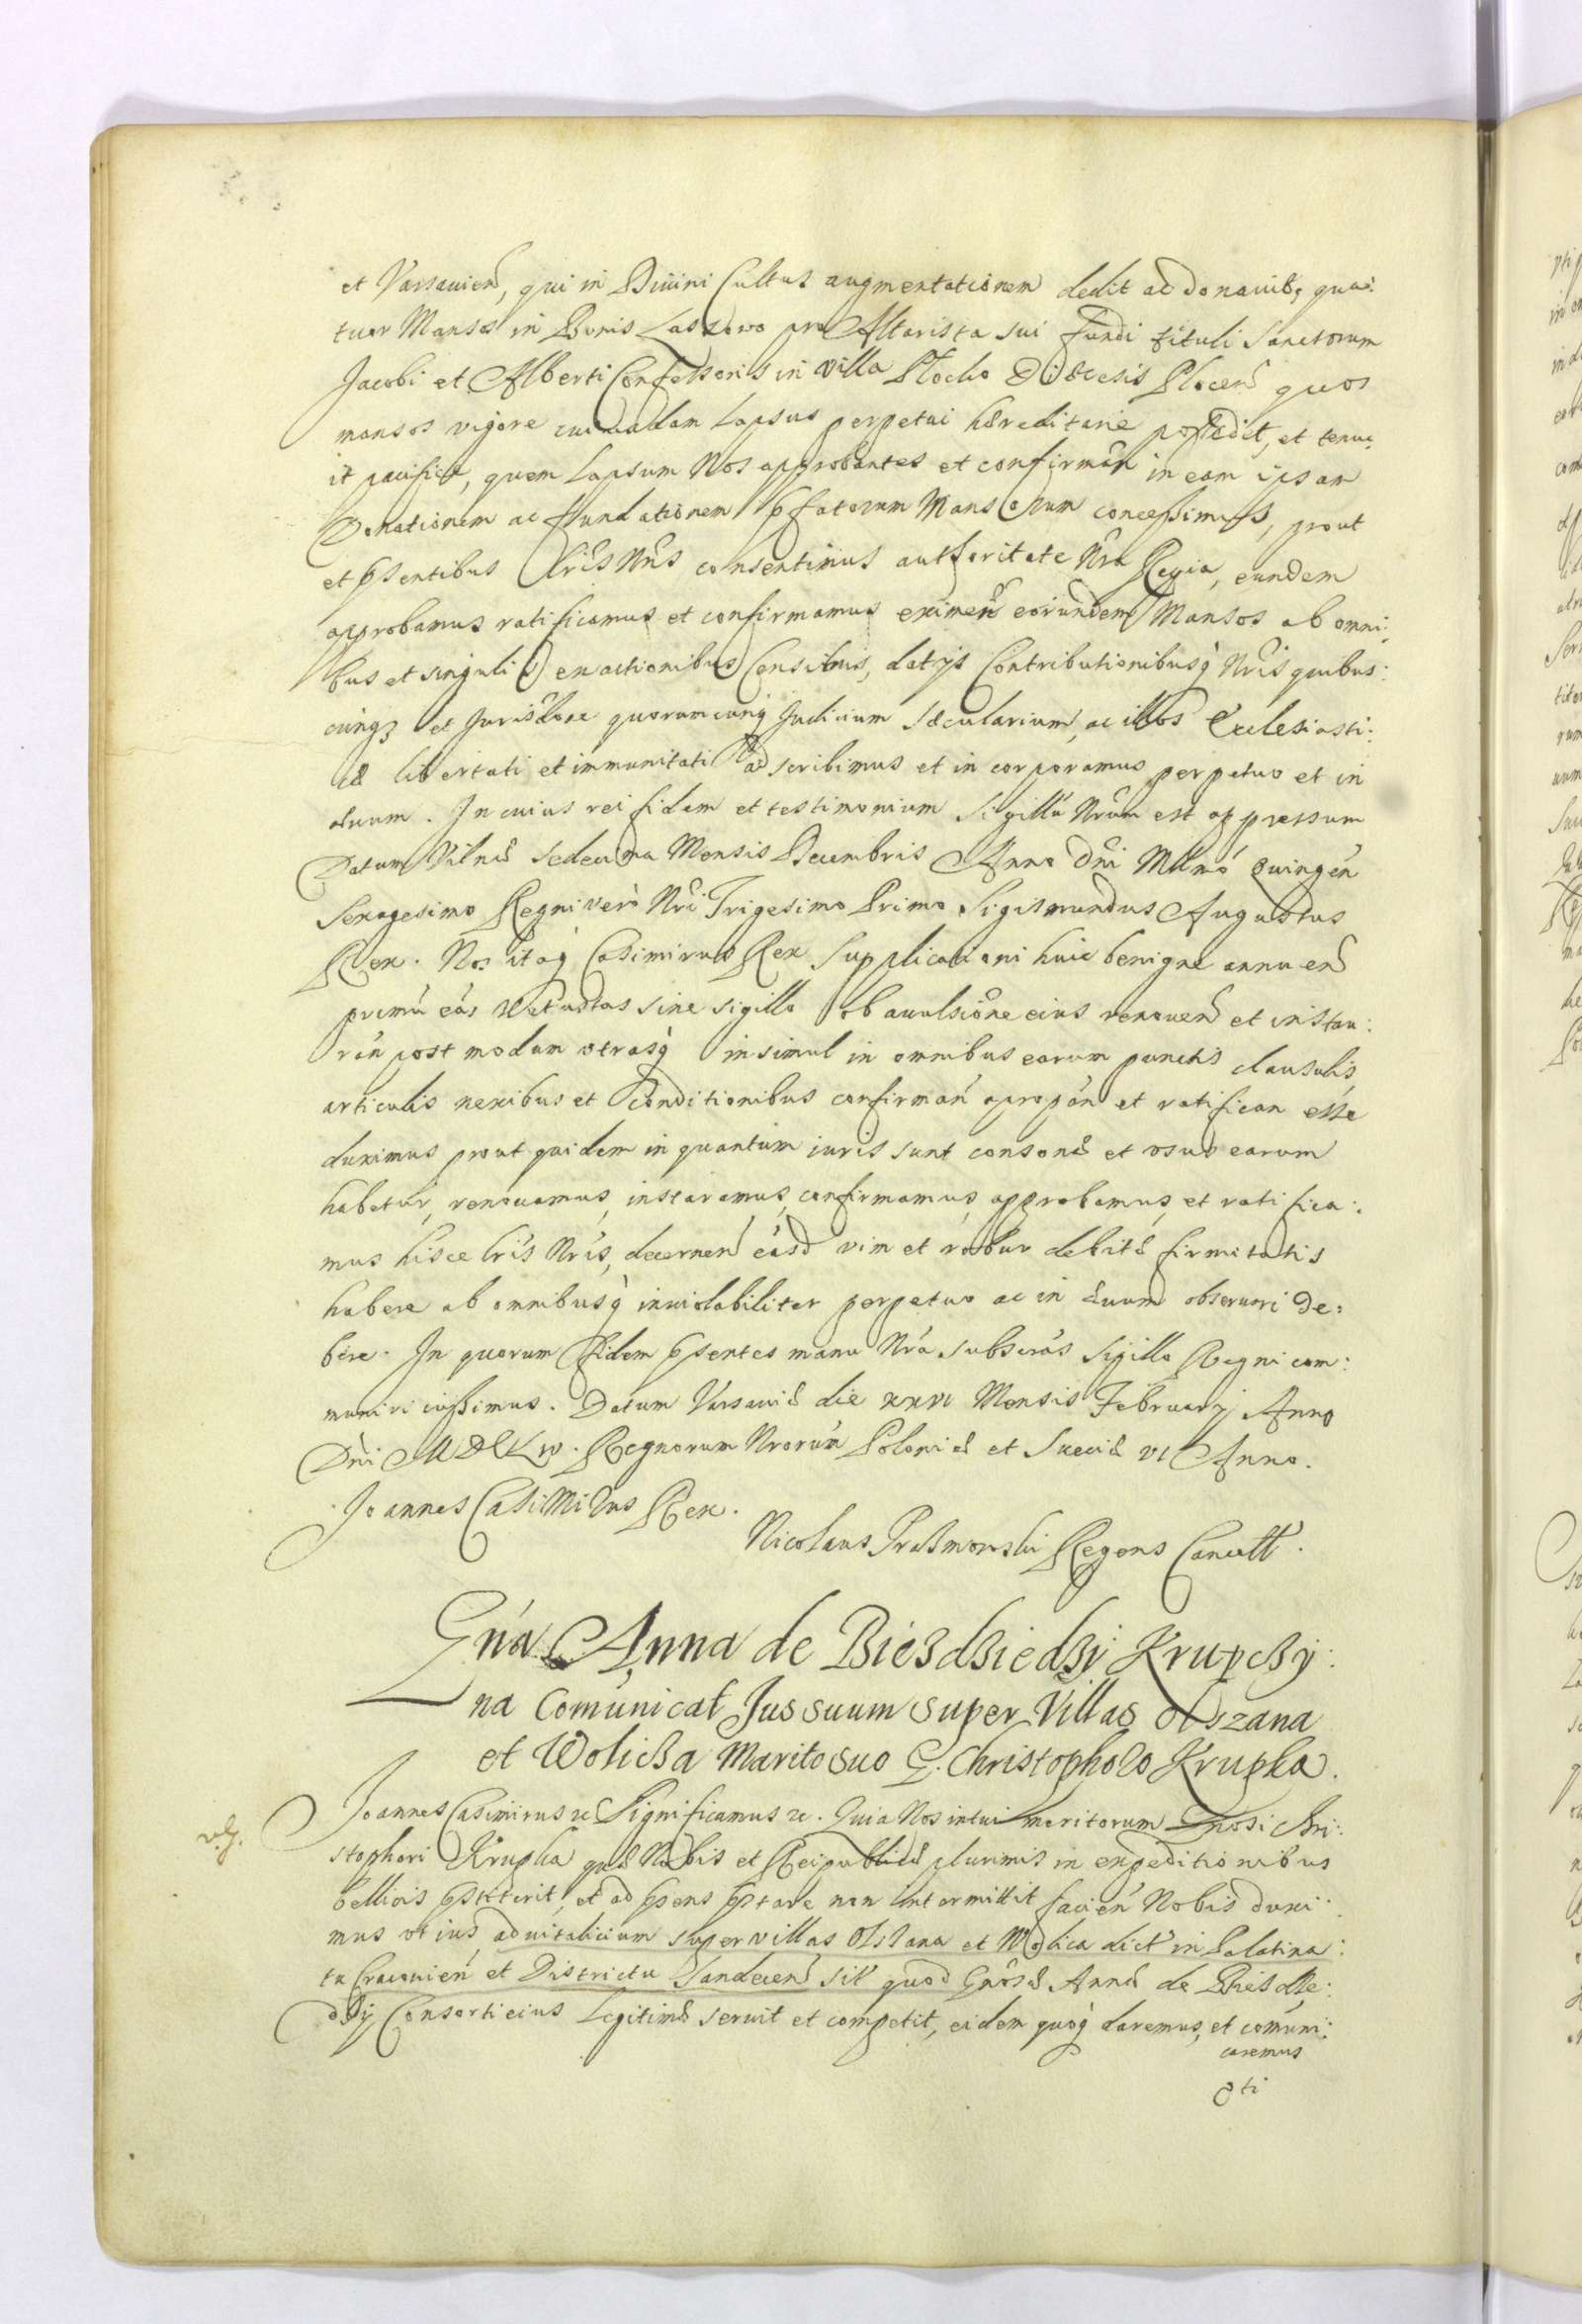 et Varsauien, qui in Diuini Cultus augmentationem dedit ac donauit, qua:
tuor Mansos in Bonis Laskowo pro Altarista sui fundi tituli Sanctorum
Jacobi et Alberti Confessoris in villa Plocko Diœcesis Plocen quos
mansos vigore cuiusdam Lapsus perpetui hæreditarie possedit, et tenu:
it pacifice, quem Lapsum Nos approbantes et confirman in eam ipsam
Donationem ac fundationem pfatorum Mansorum concessimus, prout
et pntibus Lris Nris consentimus authoritate Nra Regia, eundem
approbamus ratificamus et confirmamus eximen eorundem Mansos ab omni:
bus et singulis exactionibus Censibus, datijs Contributionibusq Nris quibus:
cunqz et Jurisdone quorumcunq Judicium Sæcularium, ac illos Ecclesiasti:
cæ libertati et immunitati adscribimus et incorporamus perpetuo et in
æuum. In cuius rei fidem et testimonium Sigillu Nrum est appressum
Datum Vilnæ sedecima Mensis Decembris Anno Dni Mllmo Quingen
Sexagesimo Regni vero Nri Trigesimo Primo Sigismundus Augustus
Rex. Nos itaq Casimirus Rex Supplicationi huic benigne annuen
primu eas vetustas sine sigillo ob auulsione eius renouen et instau:
ran postmodum vtrasq insimul in omnibus earum punctis clausulis,
articulis nexibus et conditionibus confirman appropan et ratifican esse
duximus prout quidem in quantum iuris sunt consonæ et vsus earum
habetur, renouamus, instaramus, confirmamus, approbamus, et ratifica:
mus hisce lris Nris, decernen easd vim et robur debitæ firmitatis
habere ab omnibusq inuiolabiliter perpetuo ac in æuum obseruari de:
bere. In quorum fidem psentes manu Nra subscras sigillo Regni com:
muniri iussimus. Datum Varsauiæ die XXVI Mensis February Anno
Dni MDCLIV. Regnorum Nrorum Poloniæ et Sueciæ VI Anno.
Joannes Casimirus Rex.
Nicolaus Prasmowski Regens Cancell.
Gna Anna de Biezdziedzy Krupczy:
na Comunicat Jus suum super Villas Olszana
et Wolicza Marito suo G. Christophoro Krupka.
Joannes Casimirus &c Significamus &c. Quia Nos intuitu meritorum Gnosi Chri:
stophori Krupka quæ Nobis et Reipublicæ plurimis in expeditionibus
bellicis pstiterit, et ad psens pstare non intermittit facien Nobis duxi:
mus vt ius aduitalicium super villas Olszana et Wolica dict in Palatina:
tu Cracouien et Districtu Sandecen sit quod Gnosæ Annæ de Biesdze:
dzy Consorti eius Legitimæ seruit et competit, eidem quoq daremus, et comuni:
caremus